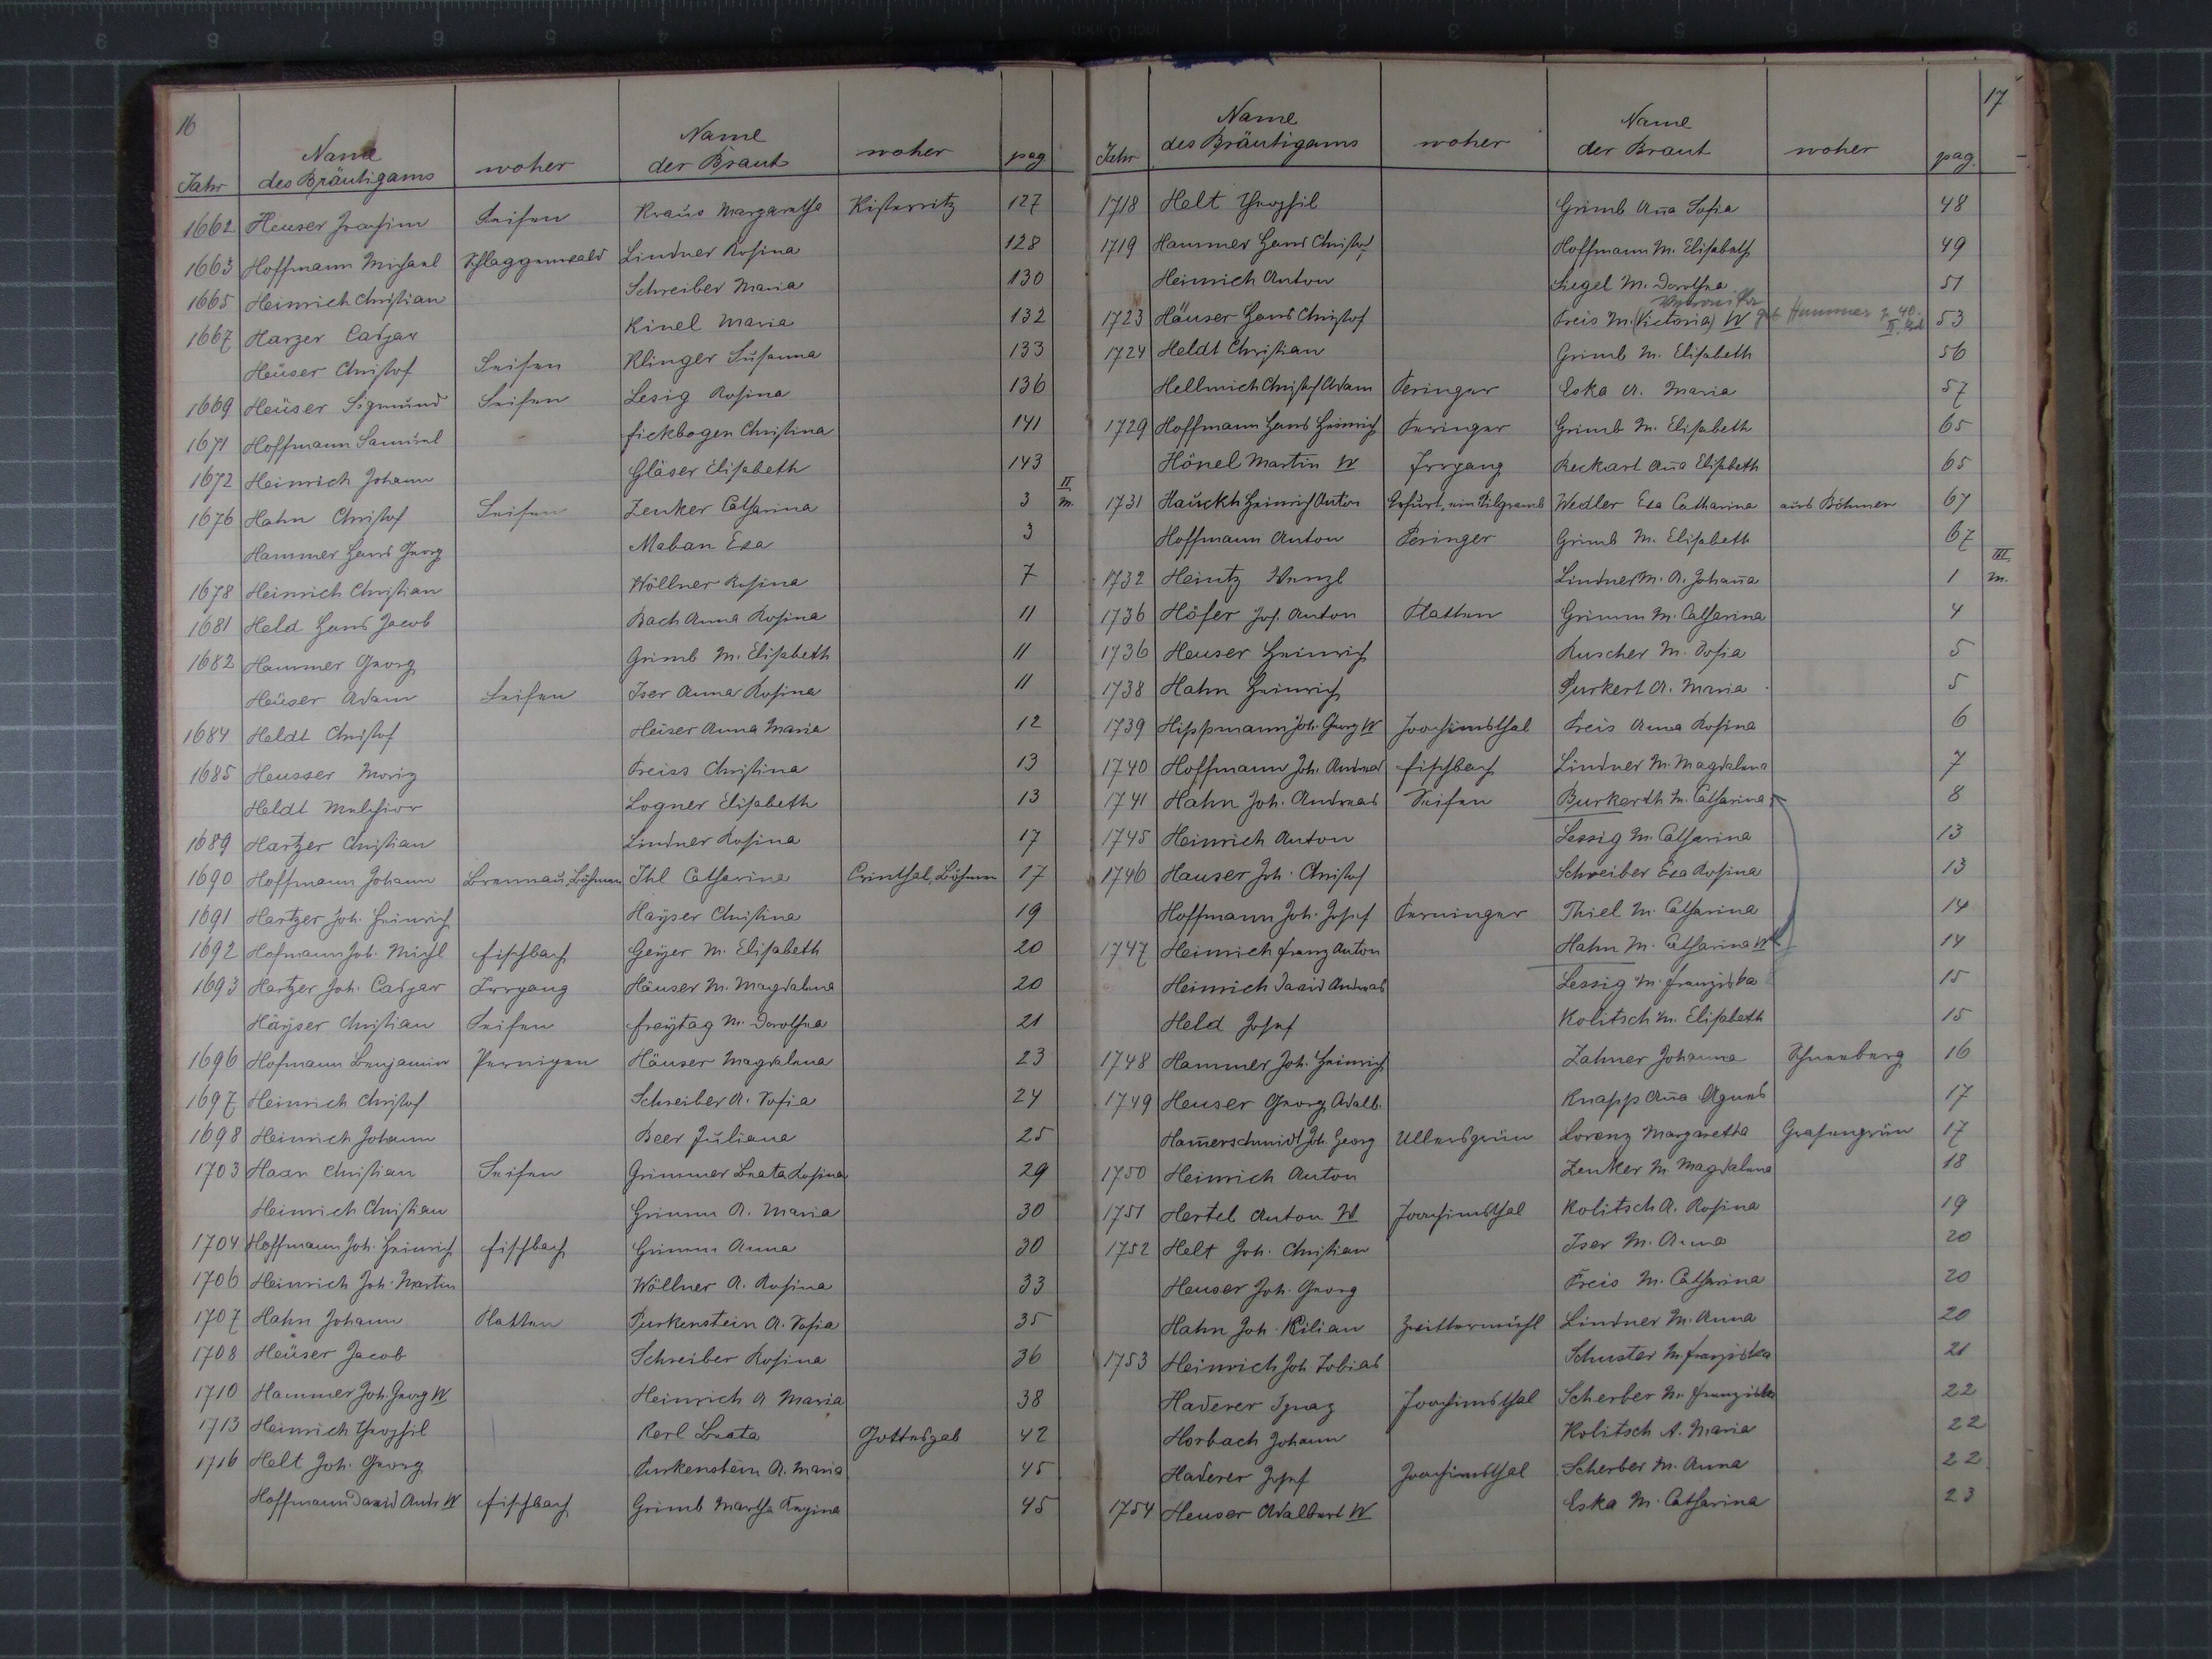 16
Jahr Name des Bräutigams woher Name der Braut woher pag
1662 Heuser Joachim Seifen Kraus Margaretha 127
1663 Hoffmann Michael Schlaggenwald Lindner Rosina 128
1665 Heinrich Christian Schreiber Maria 130
1667 Harzer Caspar Kinel Maria 132
Heüser Christof Seifen Klinger Susanna 133
1669 Heüser Sigmund Seifen Lesig Rosina 136
1671 Hoffmann Samuel Fickbogen Christina 141
1672 Heinrich Johann Gläser Elisabeth 143
1676 Hahn Christof Seifen Zenker Catharina 3 II m.
Hammer Hans Georg Maban Eva 3
1678 Heinrich Christian Wöllner Rosina 7
1681 Held Hans Jacob Bach Anna Rosina 11
1682 Hammer Georg Grimb M. Elisabeth 11
Heüser Adam Seifen Iser Anna Rosina 11
1684 Heldt Christof Heiser Anna Maria 12
1685 Heusser Moriz Preiss Christina 13
Heldt Melchior Logner Elisabeth 13
1689 Hartzer Christian Lindner Rosina 17
1690 Hoffmann Johann Braunau, Böhmen Ihl Catharina Böhmen 17
1691 Hartzer Joh. Heinrich Haÿser Christina 19
1692 Hofmann Joh. Michl Fischbach Geÿer M. Elisabeth 20
1693 Hartzer Joh. Caspar Irrgang Häuser M. Magdalena 20
Häÿser Christian Seifen Freÿtag M. Dorothea 21
1696 Hofmann Benjamin Perningen Häuser Magdalena 23
1697 Heinrich Christof Schreiber A. Sofia 24
1698 Heinrich Johann Beer Juliana 25
1703 Haan Christian Seifen Grimmer Beata Rosina 29
Heinrich Christian Grimm A. Maria 30
1704 Hoffmann Joh. Heinrich Fischbach Grimm Anna 30
1706 Heinrich Joh. Martin Wöllner A. Rosina 33
1707 Hahn Johann Platten Purkenstein A. Sofia 35
1708 Heüser Jacob Schreiber Rosina 36
1710 Hammer Joh. Georg W Heinrich A Maria 38
1713 Heinrich Theophil Kerl Beata Gottesgab 42
1716 Helt Joh. Georg Purkenstein A. Maria 45
Hoffmann David Andr W Fischbach Grimb Martha Regina 45
17
Jahr Name des Bräutigams woher Name der Braut woher pag.
1718 Helt Theophil Grimb Aña Sofia 48
1719 Hammer Hans Christof Hoffmann M. Elisabeth 49
Heinrich Anton Siegel M. Dorothea 51
Veronika
1723 Häuser Hans Christof Preis M. (Victoria) W geb Hammer p. 40. II. Bd 53
1724 Heldt Christian Grimb M. Elisabeth 56
Hellmich Christof Adam Peringer Eska A. Maria 57
1729 Hoffmann Hans Heinrich Peringer Grimb M. Elisabeth 65
Hönel Martin W Irrgang Reckart Aña Elisabeth 65
1731 Hauckh Heinrich Anton Erfurt, ein Pilgramb Wedler Eva Catharina aus Böhmen 67
Hoffmann Anton Peringer Grimb M. Elisabeth 67
1732 Heintz Wenzl Lindner M. A. Johaña 1 III m.
1736 Höfer Jos. Anton Platten Grimm M. Catharina 4
1736 Heuser Heinrich Ruscher M. Sofia 5
1738 Hahn Heinrich Purkert A. Maria 5
1739 Hippmann Joh. Georg W Joachimsthal Preis Anna Rosina 6
1740 Hoffmann Joh. Andreas Fischbach Lindner M. Magdalena 7
1741 Hahn Joh. Andreas Seifen Burkerdth M. Catharina 8
1745 Heinrich Anton Lessig M. Catharina 13
1746 Hauser Joh. Christof Schreiber Eva Rosina 13
Hoffmann Joh. Josef Perninger Thiel M. Catharina 14
1747 Heinrich Franz Anton Hahn M. Catharina W 14
Heinrich David Andreas Lessig M. Franziska 15
Held Josef Kolitsch M. Elisabeth 15
1748 Hammer Joh. Heinrich Zahner Johanna Schneeberg 16
1749 Heuser Georg Adalb. Knapp Aña Agnes 17
Ham̄erschmidt Joh. Georg Ullersgrün Lorenz Margaretha Grafengrün 17
1750 Heinrich Anton Zenker M. Magdalena 18
1751 Hertel Anton W Joachimsthal Kolitsch A. Rosina 19
1752 Helt Joh. Christian Iser M. Anna 20
Heuser Joh. Georg Preis M. Catharina 20
Hahn Joh. Kilian Zwittermühl Lindner M. Anna 20
1753 Heinrich Joh. Tobias Schuster M. Franziska 21
Haderer Ignaz Joachimsthal Scherber M. Franziska 22
Horbach Johann Kolitsch A. Maria 22
Haderer Josef Joachimsthal Scherber M. Anna 22
1754 Heuser Adalbert W Eska M. Catharina 23